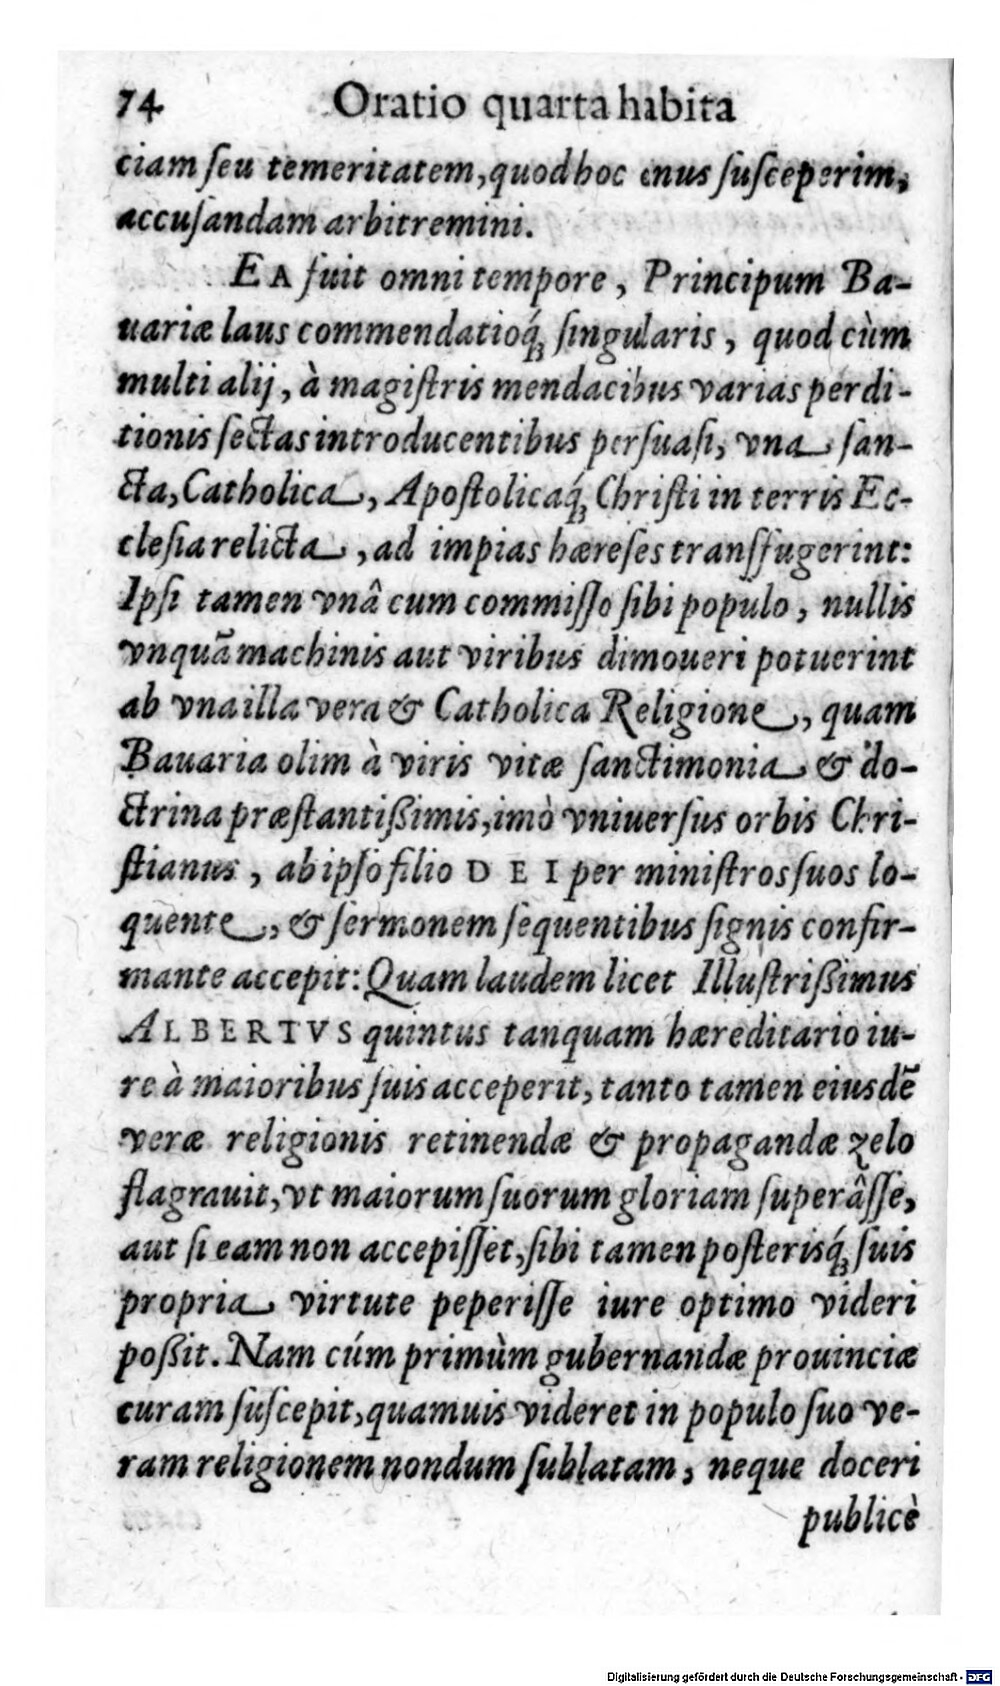 74 Oratio quarta habita
ciam ſeu temeritatem, quod hoc onus ſuſceperim,
accuſandam arbitremini.
EA fuit omni tempore, Principum Ba-
uariæ laus commendatioq́; ſingularis, quod cùm
multi alij, à magiſtris mendacibus varias perdi-
tionis ſectas introducentibus perſuaſi, vna ſan-
cta, Catholica, Apoſtolicaq́; Chriſti in terris Ec-
cleſia relicta, ad impias hæreſes transfugerint:
Ipſi tamen vnâ cum commiſſo ſibi populo, nullis
vnquā machinis aut viribus dimoueri potuerint
ab vna illa vera & Catholica Religione, quam
Bauaria olim à viris vitæ ſanctimonia & do-
ctrina præſtantißimis, imò vniuerſus orbis Chri-
ſtianus, ab ipſo filio DEI per miniſtros ſuos lo-
quente, & ſermonem ſequentibus ſignis confir-
mante accepit: Quam laudem licet Illuſtrißimus
ALBERTVS quintus tanquam hæreditario iu-
re à maioribus ſuis acceperit, tanto tamen eiusdē
veræ religionis retinendæ & propagandæ zelo
flagrauit, vt maiorum ſuorum gloriam ſuperâſſe,
aut ſi eam non accepiſſet, ſibi tamen poſterisq́; ſuis
propria virtute peperiſſe iure optimo videri
poßit. Nam cúm primùm gubernandæ prouinciæ
curam ſuſcepit, quamuis videret in populo ſuo ve-
ram religionem nondum ſublatam, neque doceri
publicè
Digitalisierung gefördert durch die Deutsche Forschungsgemeinschaft - DFG